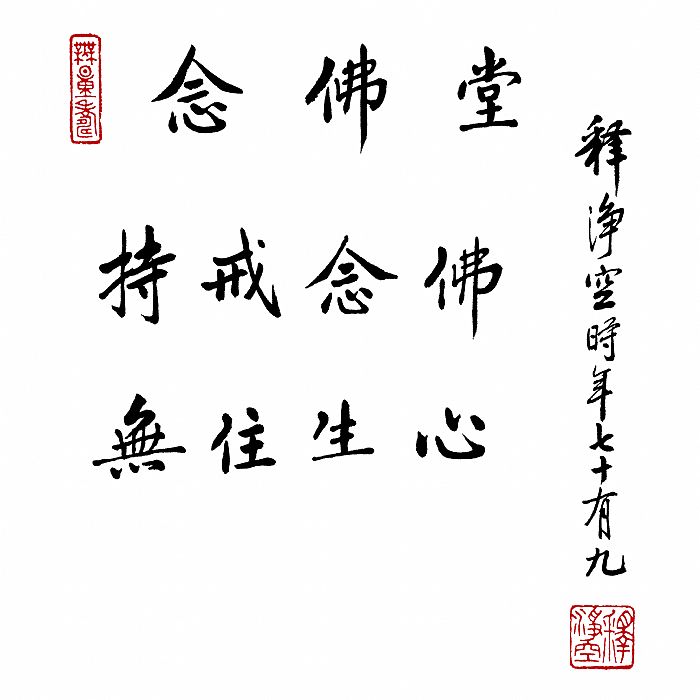 念佛堂
持戒念佛
無住生心
釋淨空時年七十有九
釋淨空